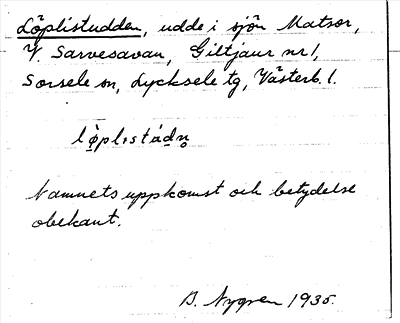 Löplistudden, udde i sjön Matsor,
V. Sarvesavan, Giltjaur nr 1,
Sorsele sn, Lycksele tg, Västerb. l.
lö̀plıstádn̥
Namnets uppkomst och betydelse
obekant.
B. Nygren 1935.